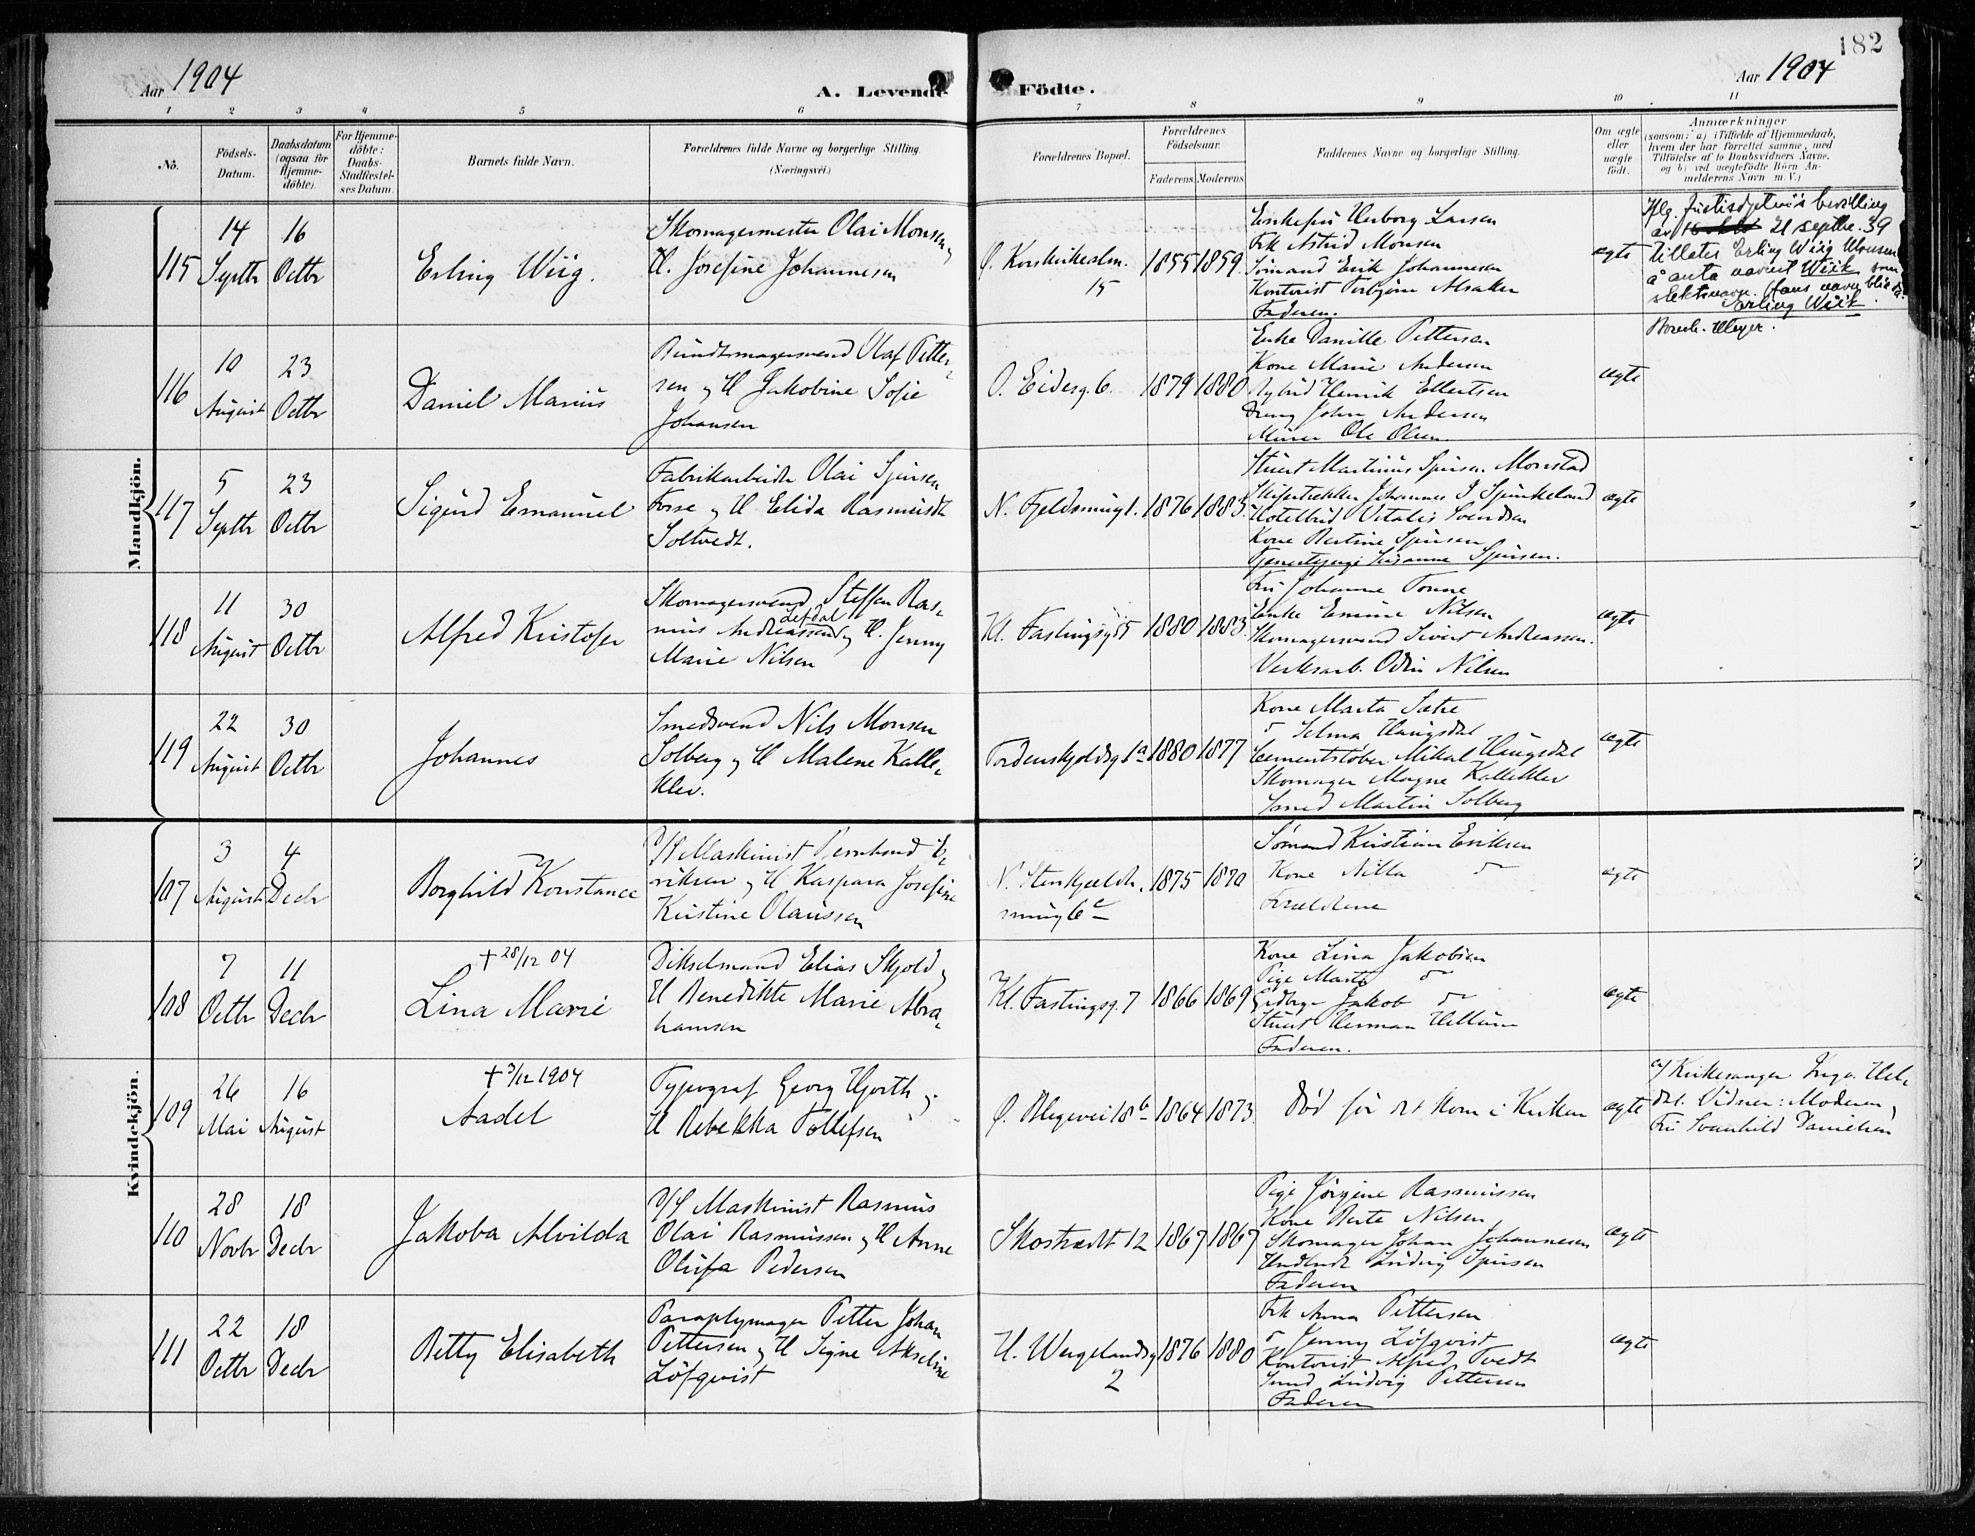 182
Aar 1904
A. Levende Födte.
Aar 1904
1 2 3 4 5 6 7 8 9 10 11
No.
Födsels-
Datum.
Daabsdatum
(ogsaa for
Hjemme-
döbte).
For Hjemme-
döbte:
Daabs-
Stadfæstel-
ses Datum.
Barnets fulde Navn.
Forældrenes fulde Navne og borgerlige Stilling.
(Næringsvei.)
Forældrenes Bopæl.
Forældrenes
Födselsaar.
Faderens Moderens
Faddernes Navne og borgerlige Stilling.
Om ægte
eller
uægte
födt.
Anmærkninger
(saasom: a) i Tilfælde af Hjemmedaab,
hvem der har forrettet samme, med
Tilföielse af to Daabsvidners Navne,
og b) ved uægtefödte Börn An-
melderens Navn m. V.)
Mandkjön.
115
14
Septbr
16
Octbr
Erling Wiig.
Skomagermester Olai Monsen
H. Josefine Johannesen
Ø. Korskirkealm.
15
1855 1859.
Enkefru Herborg Larsen
Frk Astrid Monsen
Sömand Erik Johannesen
Kontorist Torbjörn Alsaker
Faderen.
ægte
Iflg. justisdptets bevilling
av 21 septbr. 39
tillates Erling Wiig Monsen
å anta navnet Wiik som
slektsnavn. Hans navn blir da
Erling Wiik.
116
10
August
23
Octbr
Daniel Marius
Bundtmagersvend Olaf Petter-
sen og H Jakobine Sofie
Johansen
O. Eidesg. 6.
1879 1880.
Enke Danille Pettersen
Kone Marie Andersen
Henrik Ellertsen
Dreng John Andersen
Murer Ole Olsen
ægte
117
5
Septbr
23
Octbr
Sigurd Emanuel
Fabrikarbeider Olai Sjursen
Fosse og H Elida Rasmusdt
Soltvedt.
N. Fjeldsmug 1.
1876 1883.
Stuert Martinus Sjursen Monstad
Johannes J Spurkeland
Hotelbud Vitalis Svendsen
Kone Bertine Sjursen
Tjenestepige Susanne Sjursen.
ægte
118
11
August
30
Octbr
Alfred Kristofer
Skomagersvend Steffen Ras-
mus Andreassen og H. Jenny
Marie Nilsen
Kl. Fastingsg 5
1880 1883.
Fru Johanne Tonne
Enke Emma Nilsen
Skomagersvend Sivert Andreassen.
Verksarb. Odin Nilsen
ægte
119
22
August
30
Octbr
Johannes
Smedsvend Nils Monsen
Solberg og H Malene Kalle-
klev.
Tordenskjoldsg 1a
1880 1877
Kone Marta Sætre
do Selma Haugsdal
Cementstöber Mikal Haugsdal
Skomager Magne Kalleklev
Smed Martin Solberg
ægte
Kvindekjön.
107
3
August
4
Decbr
Borghild Konstance
D/S Maskinist Bernhard E-
riksen og H Kaspara Josefine
Kristine Olaussen
N. Stenkjeld-
smug 6c
1875 1870
Sömand Kristian Eriksen
Kone Nilla do
Forældrene
ægte
108
7
Octbr
11
Decbr
† 28/12 04
Lina Marie
Dikselmand Elias Skjold og
H Benedikte Marie Abra-
hamsen
Kl. Fastingsg. 7
1866 1869
Kone Lina Jakobsen
Pige Marta do
Jakob do
Stuert Herman Hellum
Faderen.
ægte
109
26
Mai
16
August
† 3/12 1904
Aadel
Typograf Georg Hjorth og
H Rebekka Tollefsen
Ø. Blegevei 18b
1864 1873.
Död för det kom i Kirken
ægte
a) Kirkesanger Inga. Hel-
dal. Vidner: Moderen,
Fru Svanhild Danielsen
110
28
Novbr
18
Decbr
Jakoba Alvilda
D/S Maskinist Rasmus
Olai Rasmussen og H Anne
Olufa Pedersen
Skostrædet 12
1867 1867
Pige Jörgine Rasmussen
Kone Berte Nilsen
Skomager Johan Johannesen
Ludvig Sjursen
Faderen
ægte
111
22
Octbr
18
Decbr
Betty Elisabeth
Paraplymager Petter Johan
Pettersen og H Signe Akseline
Löfqvist
H. Wergelandsg
2
1876 1880
Frk Anna Pettersen
do Jenny Löfqvist
Kontorist Alfred Tvedt
Smed Ludvig Pettersen
Faderen
ægte